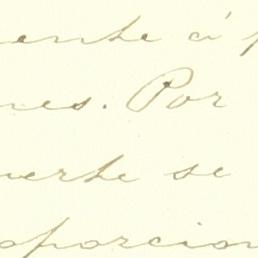 ente á p
nes. Por
uerte se
oporcion